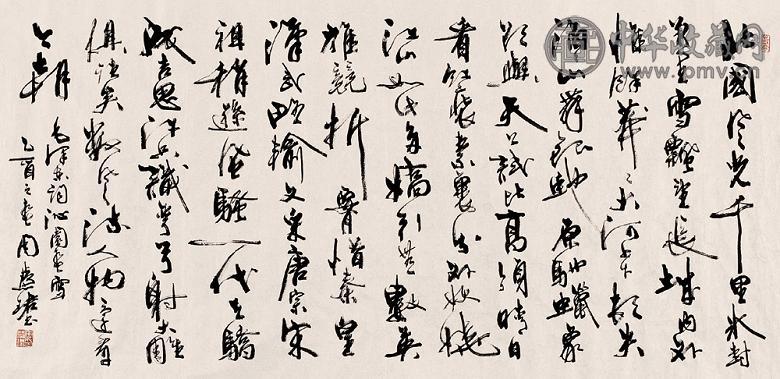 北國风光千里冰封
万里雪飄望长城内外
惟餘莽莽大河上下顿失
滔滔山舞银蛇原驰蜡象
欲與天公試比高须晴日
看红装素裹分外妖娆
江山如此多嬌引無数英
雄競折腰惜秦皇
漢武略输文采唐宗宋
祖稍遜风騷一代天驕
成吉思汗只識彎弓射大雕
俱往矣数风流人物还看
今朝
毛泽东词沁園春雪
乙酉之春周慧珺
中华收藏网
www.pmv.cn